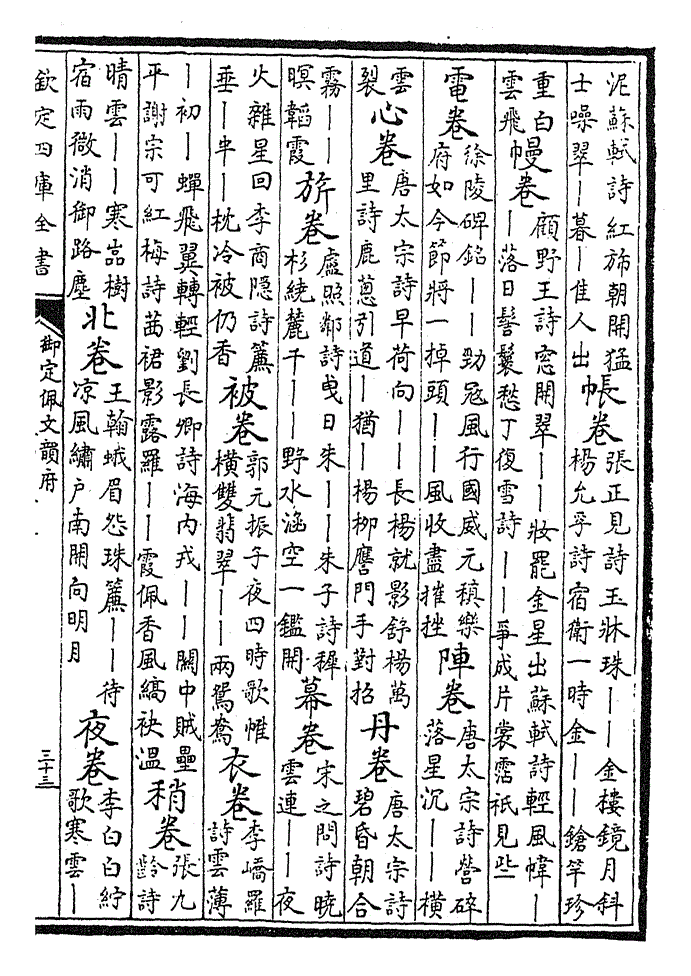 泥蘇軾詩紅斾朝開猛
士噪翠｜暮｜佳人出
帳卷
張正見詩玉牀珠｜｜金樓鏡月斜
楊允孚詩宿衛一時金｜｜鎗竿珍
重白
雲飛
幔卷
顧野王詩窓開翠｜｜妝罷金星出蘇軾詩輕風幃｜
｜落日髻鬟愁丁復雪詩｜｜爭成片裳霑祇見些
電卷
徐陵碑銘｜｜勁冦風行國威元稹樂
府如今節將一掉頭｜｜風收盡摧挫
陣卷
唐太宗詩營碎
落星沉｜｜橫
雲
裂
心卷
唐太宗詩早荷向｜｜長楊就影舒楊萬
里詩鹿蔥引道｜猶｜楊柳譍門手對招
丹卷
唐太宗詩
碧昏朝合
霧｜｜
暝韜霞
旂卷
盧照鄰詩曵日朱｜｜朱子詩穉
杉繞麓千｜｜野水涵空一鑑開
幕卷
宋之問詩曉
雲連｜｜夜
火雜星回李商隱詩簾
垂｜半｜枕冷被仍香
被卷
郭元振子夜四時歌帷
橫雙翡翠｜｜兩鴛鴦
衣卷
李嶠羅
詩雲薄
｜初｜蟬飛翼轉輕劉長卿詩海内戎｜｜關中賊壘
平謝宗可紅梅詩茜裙影露羅｜｜霞佩香風縞袂溫
稍卷
張九
齡詩
晴雲｜｜寒嵓樹
宿雨微消御路塵
北卷
王翰蛾眉怨珠簾｜｜待
凉風繡户南開向明月
夜卷
李白白紵
歌寒雲｜
欽定四庫全書
御定佩文韻府
三十三